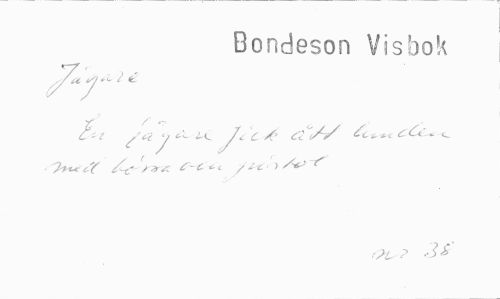 Bondeson Visbok
Jägare
En jägare gick åt lunden
med bössa och pistol
nr 38